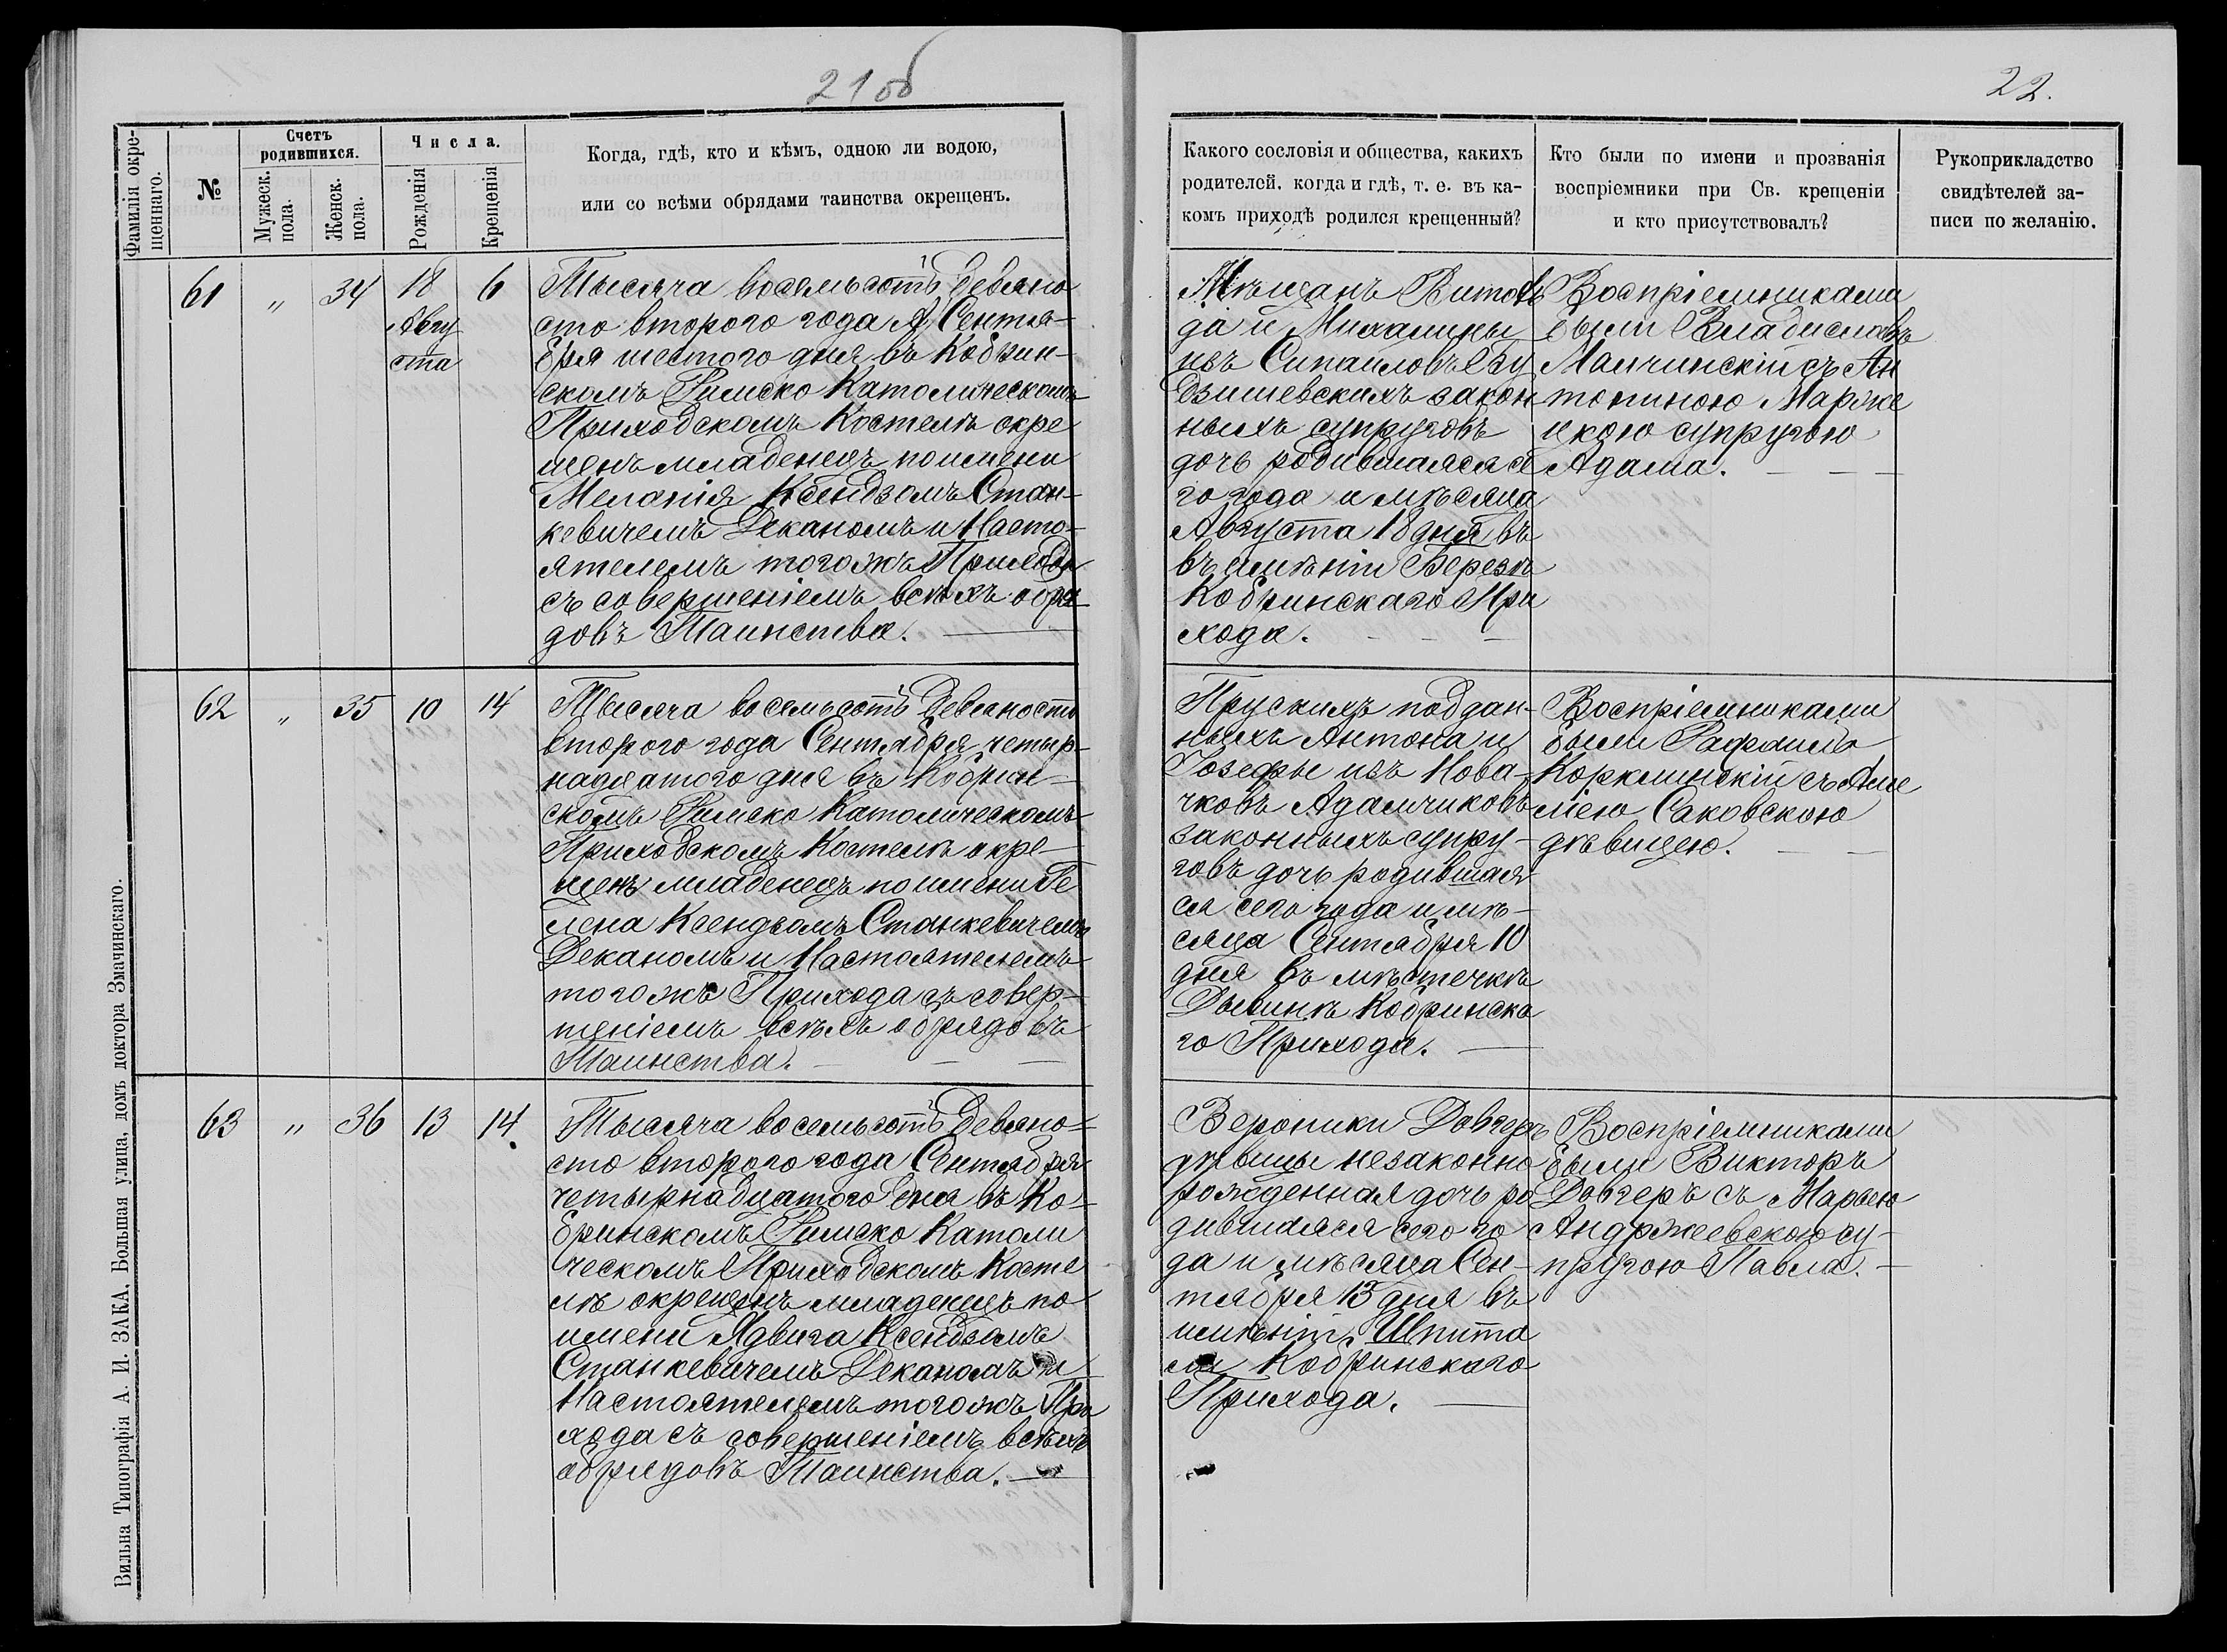 21 об
22.
Фамилія окре-
щеннаго.
№
Счетъ
родившихся.
Мужеск.
пола.
Женск.
пола.
Числа.
Рожденія
Крещенія
Когда, гдѣ, кто и кѣмъ, одною ли водою,
или со всѣми обрядами таинства окрещенъ.
Какого сословія и общества, какихъ
родителей, когда и гдѣ, т. е. въ ка-
комъ приходѣ родился крещенный?
Кто были по имени и прозванія
воспріемники при Св. крещеніи
и кто присутствовалъ?
Рукоприкладство
свидѣтелей за-
писи по желанію.
61 " 34 18 6
Авгу
ста
Тысяча восемьсотъ девяно
сто второго года Сентя-
бря шестого дня въ Кобрин-
скомъ Римско Католическомъ
Приходскомъ Костелѣ окре
щенъ младенецъ по имени
Меланія Ксендзомъ Стан-
кевичемъ Деканомъ и Насто-
ятелемъ тогожъ Прихода
съ совершеніемъ всѣхъ обря
довъ Таинства.
Мѣщанъ Витоль
да и Михалины
изъ Сипайловъ Бу
дзишевскихъ закон
ныхъ супруговъ
дочь родившаяся се
го года и мѣсяца
Августа 18 дня въ
въ имѣніи Березѣ
Кобринскаго При
хода.
Воспріемниками
были Владиславъ
Малчинскій съ Ан
тониною Марже
цкою супругою
Адама.
62 " 35 10 14
Тысяча восемьсотъ девяносто
второго года Сентября четыр-
надцатого дня въ Кобрин-
скомъ Римско Католическомъ
Приходскомъ Костелѣ окре-
щенъ младенецъ по имени Ге
лена Ксендзомъ Станкевичемъ
Деканомъ и Настоятелемъ
тогожъ Прихода съ совер-
шеніемъ всѣхъ обрядовъ
Таинства.
Прускихъ поддан-
ныхъ Антона и
Іозефы изъ Нова-
чковъ Адамчиковъ
законныхъ супру-
говъ дочь родившая
ся сего года и мѣ-
сяца Сентября 10
дня въ мѣстечкѣ
Дывинѣ Кобринска
го Прихода.
Воспріемниками
были Рафаилъ
Корклинскій съ Аме
ліею Саковскою
дѣвицею.
63 " 36 13 14
Тысяча восемьсотъ девяно-
сто второго года Сентября
четырнадцатого дня въ Ко-
бринскомъ Римско Католи
ческомъ Приходскомъ Косте
лѣ окрещенъ младенецъ по
имени Ядвига Ксендзомъ
Станкевичемъ Деканомъ и
Настоятелемъ тогожъ При
хода съ совершеніемъ всѣхъ
обрядовъ Таинства.
Вероники Довгеръ
дѣвицы незаконно
рожденная дочь ро
дившаяся сего го
да и мѣсяца Сен-
тября 13 дня въ
имѣніи Шпита
ли Кобринскаго
Прихода.
Воспріемниками
были Викторъ
Довгеръ съ Маріею
Андржеевскою су-
пругою Павла.
Вильна Типографія А. И. ЗАКА, Большая улица, домъ доктора Значинскаго.